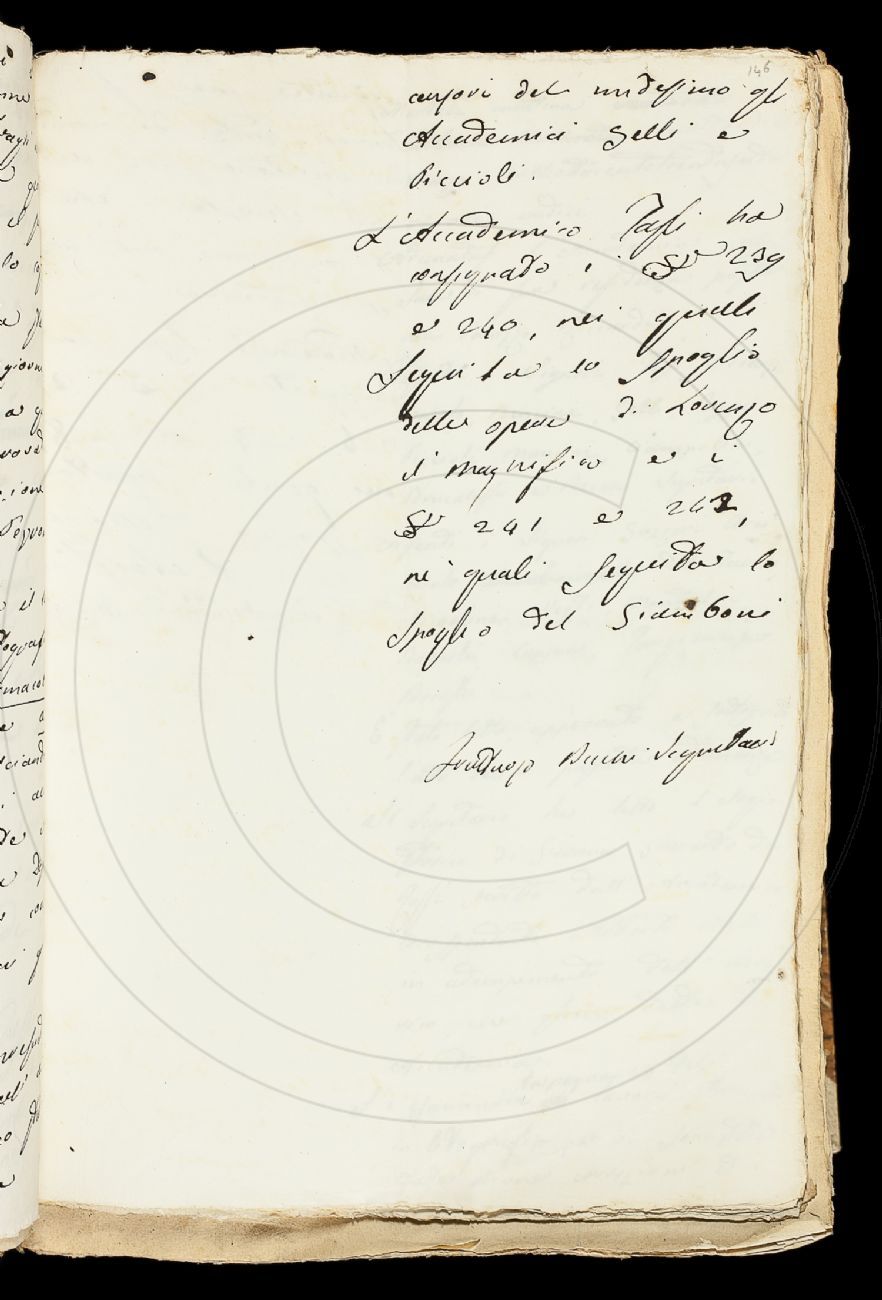 146
censori del medesimo gli
Accademici Gelli e
Piccioli.
L'Accademico Tassi ha
consegnato i 239
e 240, nei quali
Seguita lo Spoglio
delle opere di Lorenzo
il magnifico e i
241 e 242,
ne' quali Seguita lo
Spoglio del Giamboni
Fruttuoso Becchi Segretario